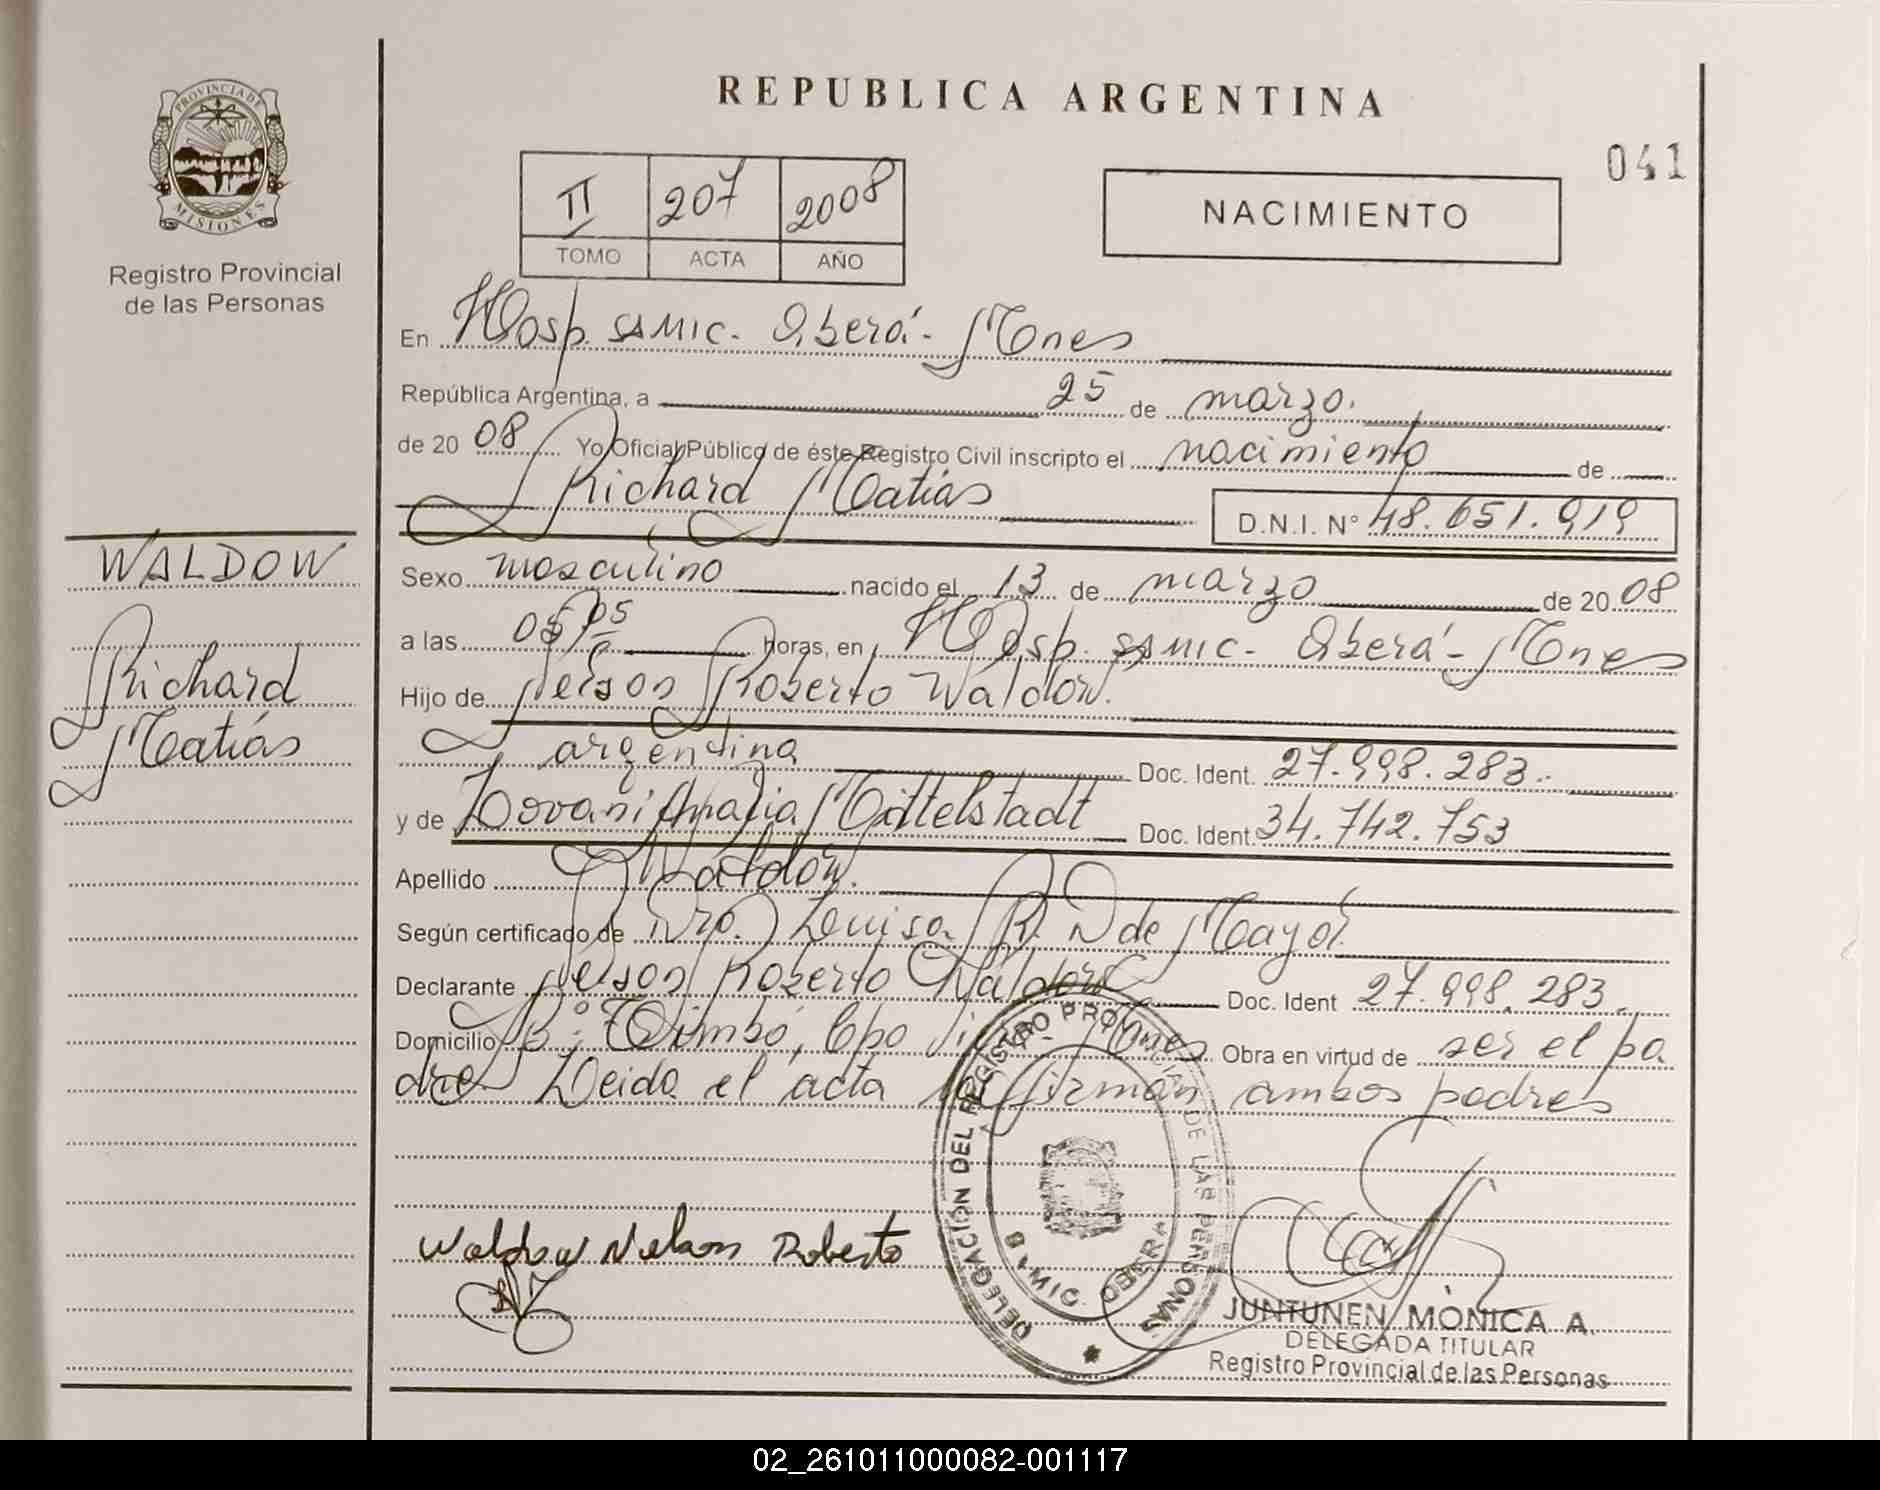 REPUBLICA ARGENTINA
041
PROVINCIA DE MISIONES
Registro Provincial
de las Personas
II 207 2008
TOMO ACTA AÑO
NACIMIENTO
En Hosp. SAMIC - Oberá - Mnes
República Argentina, a 25 de marzo.
de 20 08 Yo Oficial Público de éste Registro Civil inscripto el nacimiento de
Richard Matías D.N.I. N° 48.651.919
WALDOW
Richard
Matías
Sexo masculino nacido el 13 de marzo de 20 08
a las 05,05 horas, en Hosp. SAMIC - Oberá - Mnes
Hijo de Nelson Roberto Waldow.
argentina Doc. Ident. 27.998.283.
y de Lovani Amalia Mittelstadt Doc. Ident. 34.742.753
Apellido Waldow.
Según certificado de Dra. Luisa R. D de Mayol
Declarante Nelson Roberto Waldow Doc. Ident 27.998.283.
Domicilio B° Timbó, Cpo Mnes Obra en virtud de ser el pa
dre Leida el acta firman ambos padres
Waldow Nelson Roberto
DELEGACIÓN DEL REGISTRO PROVINCIAL DE LAS PERSONAS
SAMIC OBERA
JUNTUNEN MÓNICA A.
DELEGADA TITULAR
Registro Provincial de las Personas
02_261011000082-001117